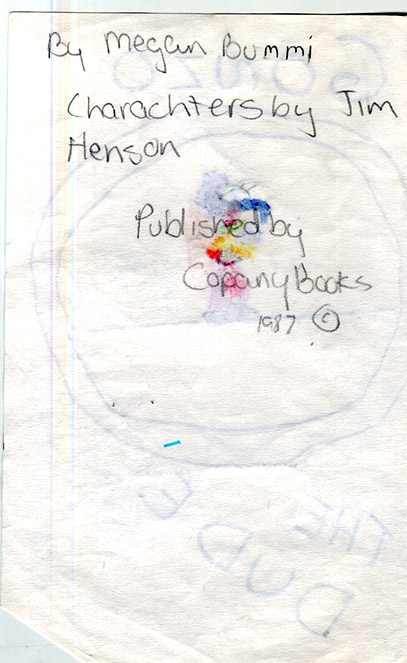 GONZO
By Megan Bummi
Charachters by Jim
Henson
Published by
Copany Books
1987 ©
THE
DUDE